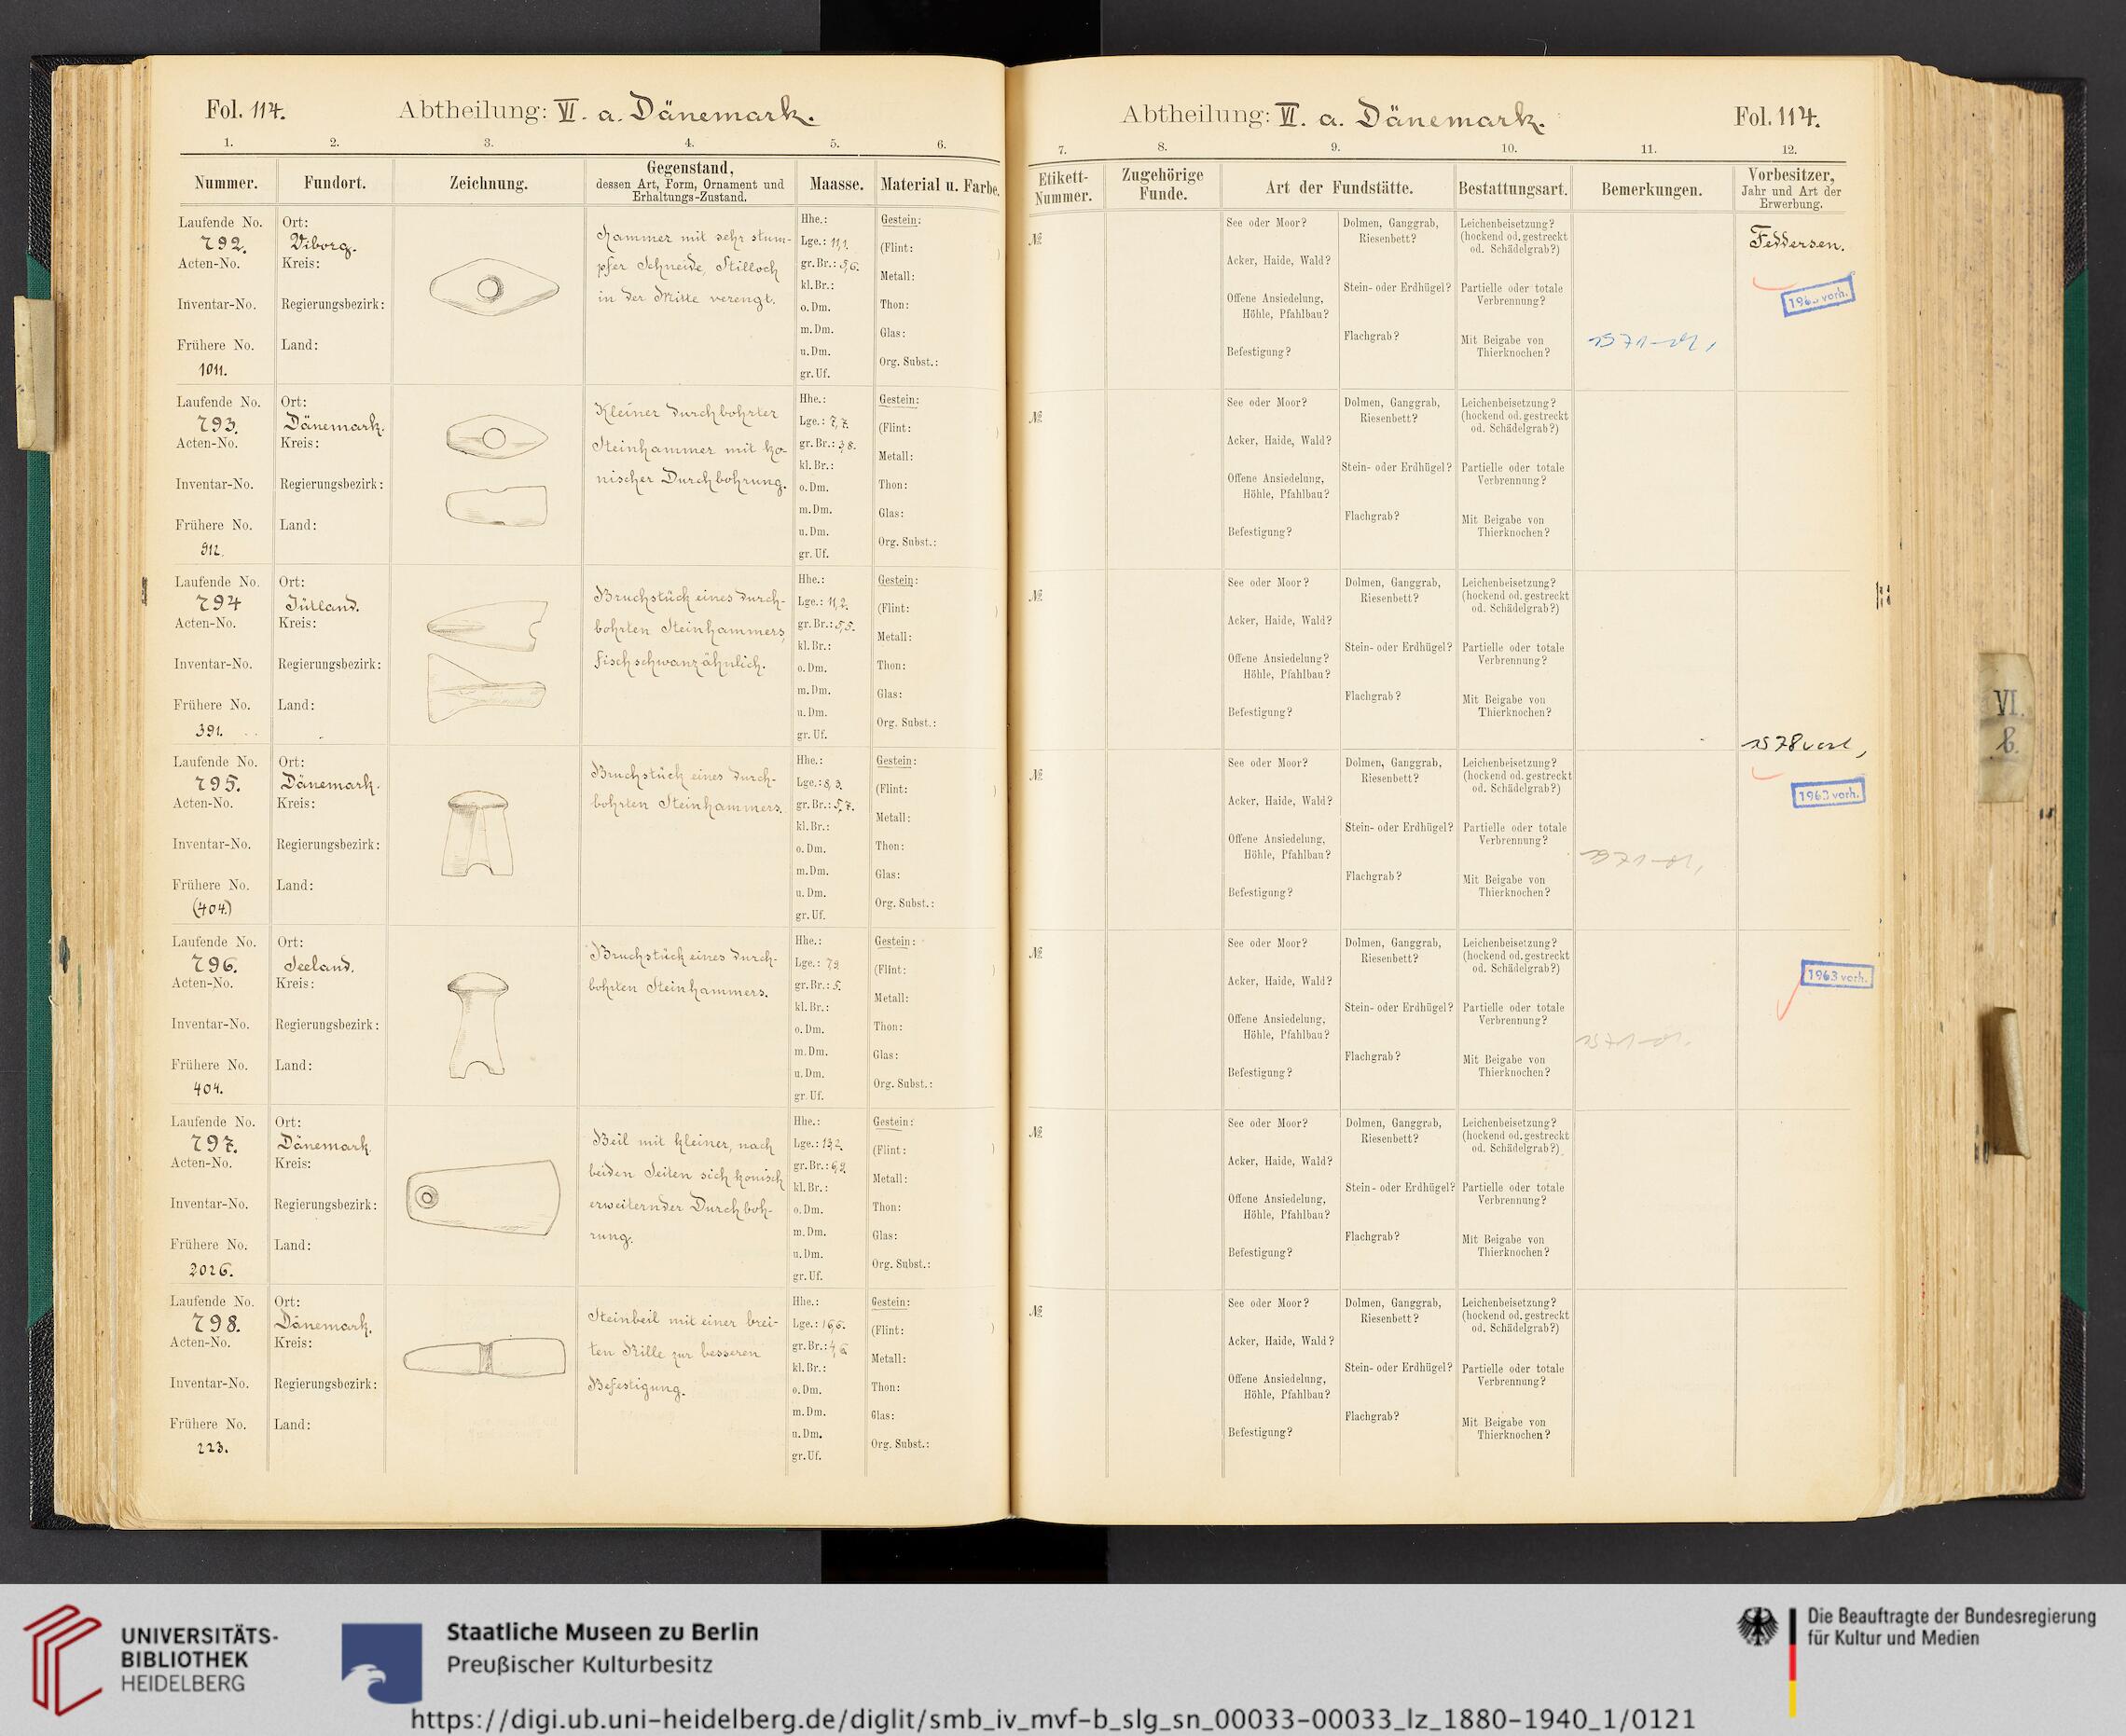 Fol. 114.
Abtheilung: VI. a. Dänemark.
1. 2. 3. 4. 5. 6.
Nummer. Fundort. Zeichnung. Gegenstand, dessen Art, Form, Ornament und Erhaltungs-Zustand. Maasse. Material u. Farbe.
Laufende No.
792.
Acten-No.
Inventar-No.
Frühere No.
1011.
Ort:
Viborg.
Kreis:
Regierungsbezirk:
Land:
Hammer mit sehr stum-
pfer Schneide, Stilloch
in der Mitte verengt.
Hhe.:
Lge.: 11,1.
gr. Br.: 5,6.
kl. Br.:
o. Dm.
m. Dm.
u. Dm.
gr. Uf.
Gestein:
(Flint: )
Metall:
Thon:
Glas:
Org. Subst.:
Laufende No.
793.
Acten-No.
Inventar-No.
Frühere No.
912.
Ort:
Dänemark.
Kreis:
Regierungsbezirk:
Land:
Kleiner durchbohrter
Steinhammer mit ko-
nischer Durchbohrung.
Hhe.:
Lge.: 7,7.
gr. Br.: 3,8.
kl. Br.:
o. Dm.
m. Dm.
u. Dm.
gr. Uf.
Gestein:
(Flint: )
Metall:
Thon:
Glas:
Org. Subst.:
Laufende No.
794
Acten-No.
Inventar-No.
Frühere No.
391.
Ort:
Jütland.
Kreis:
Regierungsbezirk:
Land:
Bruchstück eines durch-
bohrten Steinhammers,
fischschwanzähnlich.
Hhe.:
Lge.: 11,2.
gr. Br.: 5,5.
kl. Br.:
o. Dm.
m. Dm.
u. Dm.
gr. Uf.
Gestein:
(Flint: )
Metall:
Thon:
Glas:
Org. Subst.:
Laufende No.
795.
Acten-No.
Inventar-No.
Frühere No.
(404.)
Ort:
Dänemark.
Kreis:
Regierungsbezirk:
Land:
Bruchstück eines durch-
bohrten Steinhammers.
Hhe.:
Lge.: 8,3.
gr. Br.: 5,7.
kl. Br.:
o. Dm.
m. Dm.
u. Dm.
gr. Uf.
Gestein:
(Flint: )
Metall:
Thon:
Glas:
Org. Subst.:
Laufende No.
796.
Acten-No.
Inventar-No.
Frühere No.
404.
Ort:
Seeland.
Kreis:
Regierungsbezirk:
Land:
Bruchstück eines durch-
bohrten Steinhammers.
Hhe.:
Lge.:
gr. Br.: 5.
kl. Br.:
o. Dm.
m. Dm.
u. Dm.
gr. Uf.
Gestein:
(Flint: )
Metall:
Thon:
Glas:
Org. Subst.:
Laufende No.
797.
Acten-No.
Inventar-No.
Frühere No.
2026.
Ort:
Dänemark.
Kreis:
Regierungsbezirk:
Land:
Beil mit kleiner, nach
beiden Seiten sich konisch
erweiternder Durchboh-
rung.
Hhe.:
Lge.: 13,2.
gr. Br.:
kl. Br.:
o. Dm.
m. Dm.
u. Dm.
gr. Uf.
Gestein:
(Flint: )
Metall:
Thon:
Glas:
Org. Subst.:
Laufende No.
798.
Acten-No.
Inventar-No.
Frühere No.
223.
Ort:
Dänemark.
Kreis:
Regierungsbezirk:
Land:
Steinbeil mit einer brei-
ten Rille zur besseren
Befestigung.
Hhe.:
Lge.: 16,6.
gr. Br.: 4,6
kl. Br.:
o. Dm.
m. Dm.
u. Dm.
gr. Uf.
Gestein:
(Flint: )
Metall:
Thon:
Glas:
Org. Subst.:
Abtheilung: VI. a. Dänemark.
Fol. 114.
7. 8. 9. 10. 11. 12.
Etikett-Nummer. Zugehörige Funde. Art der Fundstätte. Bestattungsart. Bemerkungen. Vorbesitzer, Jahr und Art der Erwerbung.
№
See oder Moor?
Acker, Haide, Wald?
Offene Ansiedelung,
Höhle, Pfahlbau?
Befestigung?
Dolmen, Ganggrab,
Riesenbett?
Stein- oder Erdhügel?
Flachgrab?
Leichenbeisetzung?
(hockend od. gestreckt
od. Schädelgrab?)
Partielle oder totale
Verbrennung?
Mit Beigabe von
Thierknochen?
Feddersen.
vorh.
№
See oder Moor?
Acker, Haide, Wald?
Offene Ansiedelung,
Höhle, Pfahlbau?
Befestigung?
Dolmen, Ganggrab,
Riesenbett?
Stein- oder Erdhügel?
Flachgrab?
Leichenbeisetzung?
(hockend od. gestreckt
od. Schädelgrab?)
Partielle oder totale
Verbrennung?
Mit Beigabe von
Thierknochen?
№
See oder Moor?
Acker, Haide, Wald?
Offene Ansiedelung?
Höhle, Pfahlbau?
Befestigung?
Dolmen, Ganggrab,
Riesenbett?
Stein- oder Erdhügel?
Flachgrab?
Leichenbeisetzung?
(hockend od. gestreckt
od. Schädelgrab?)
Partielle oder totale
Verbrennung?
Mit Beigabe von
Thierknochen?
№
See oder Moor?
Acker, Haide, Wald?
Offene Ansiedelung,
Höhle, Pfahlbau?
Befestigung?
Dolmen, Ganggrab,
Riesenbett?
Stein- oder Erdhügel?
Flachgrab?
Leichenbeisetzung?
(hockend od. gestreckt
od. Schädelgrab?)
Partielle oder totale
Verbrennung?
Mit Beigabe von
Thierknochen?
1963 vorh.
№
See oder Moor?
Acker, Haide, Wald?
Offene Ansiedelung,
Höhle, Pfahlbau?
Befestigung?
Dolmen, Ganggrab,
Riesenbett?
Stein- oder Erdhügel?
Flachgrab?
Leichenbeisetzung?
(hockend od. gestreckt
od. Schädelgrab?)
Partielle oder totale
Verbrennung?
Mit Beigabe von
Thierknochen?
1963 vorh.
№
See oder Moor?
Acker, Haide, Wald?
Offene Ansiedelung,
Höhle, Pfahlbau?
Befestigung?
Dolmen, Ganggrab,
Riesenbett?
Stein- oder Erdhügel?
Flachgrab?
Leichenbeisetzung?
(hockend od. gestreckt
od. Schädelgrab?)
Partielle oder totale
Verbrennung?
Mit Beigabe von
Thierknochen?
№
See oder Moor?
Acker, Haide, Wald?
Offene Ansiedelung,
Höhle, Pfahlbau?
Befestigung?
Dolmen, Ganggrab,
Riesenbett?
Stein- oder Erdhügel?
Flachgrab?
Leichenbeisetzung?
(hockend od. gestreckt
od. Schädelgrab?)
Partielle oder totale
Verbrennung?
Mit Beigabe von
Thierknochen?
VI.
b.
UNIVERSITÄTS-
BIBLIOTHEK
HEIDELBERG
Staatliche Museen zu Berlin
Preußischer Kulturbesitz
Die Beauftragte der Bundesregierung
für Kultur und Medien
https://digi.ub.uni-heidelberg.de/diglit/smb_iv_mvf-b_slg_sn_00033-00033_lz_1880-1940_1/0121